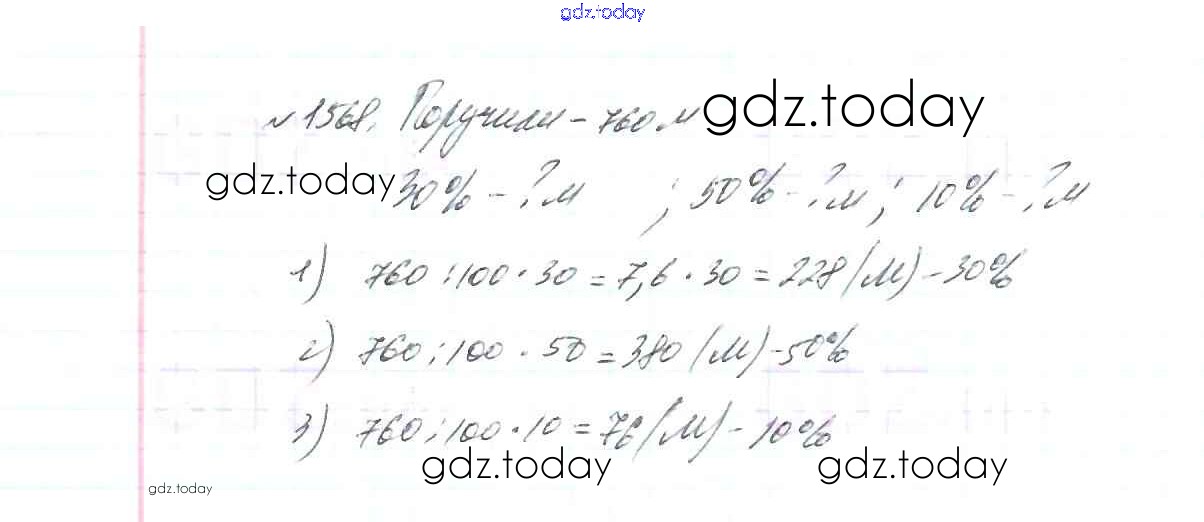 gdz.today
№1568. Поручили - 760 м gdz.today
gdz.today 30% - ? м ; 50% - ? м ; 10% - ? м
1) 760 : 100 · 30 = 7,6 · 30 = 228 (м) - 30%
2) 760 : 100 · 50 = 380 (м) - 50%
3) 760 : 100 · 10 = 76 (м) - 10%
gdz.today gdz.today
gdz.today